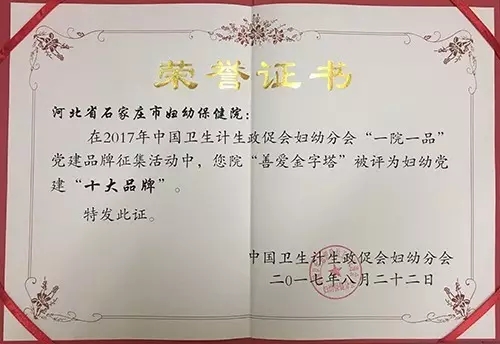 荣誉证书
河北省石家庄市妇幼保健院：
在2017年中国卫生计生政促会妇幼分会“一院一品”
党建品牌征集活动中，您院“善爱金字塔”被评为妇幼党
建“十大品牌”。
特发此证。
中国卫生计生政促会妇幼分会
二〇一七年八月二十二日